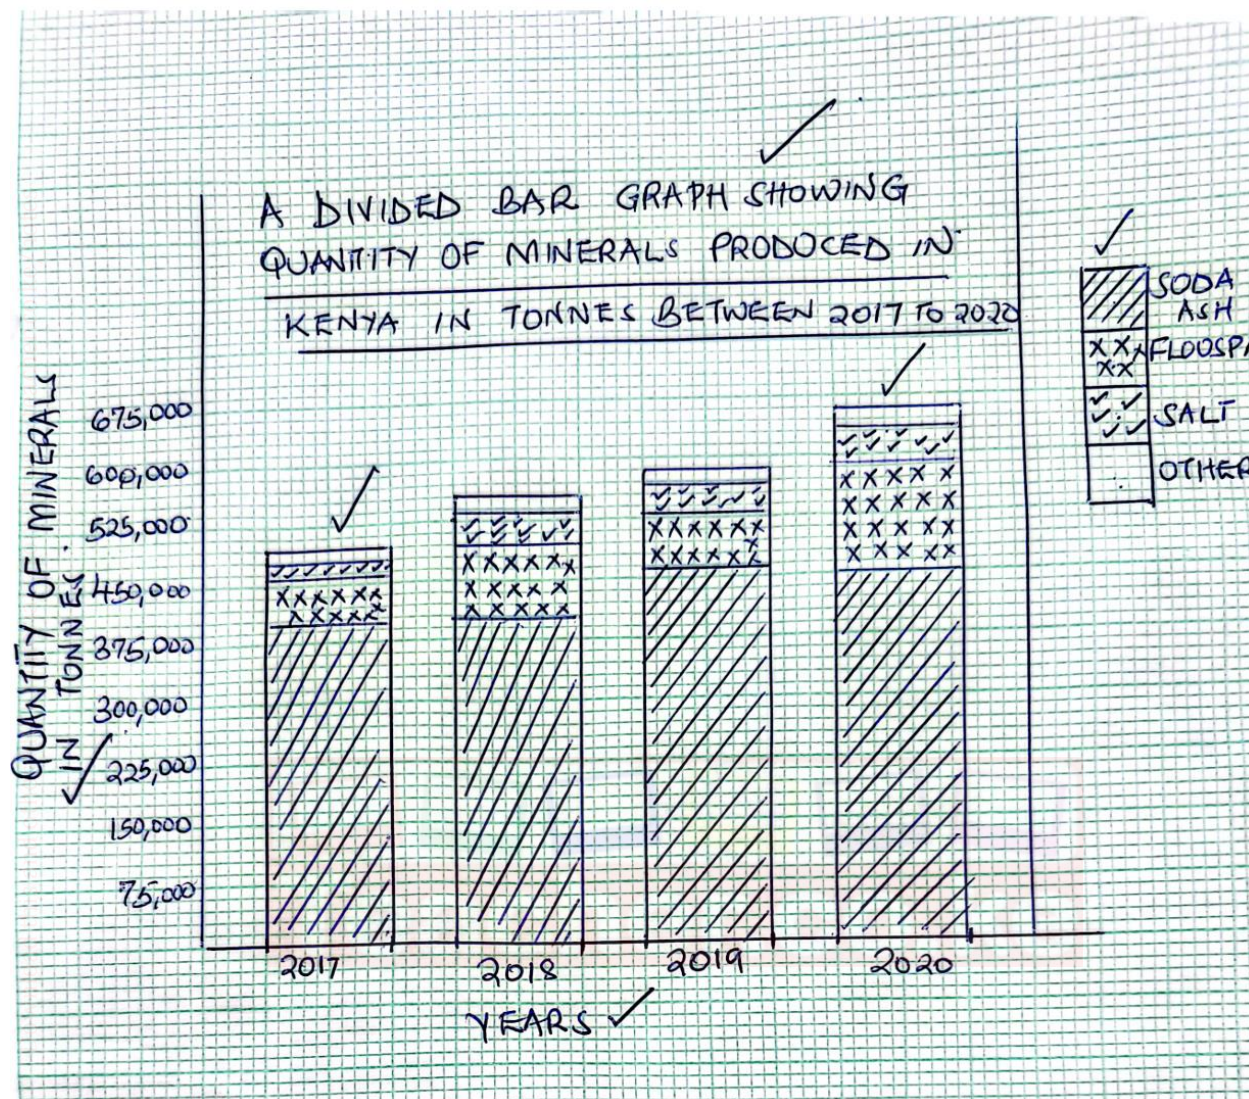 A DIVIDED BAR GRAPH SHOWING
QUANTITY OF MINERALS PRODUCED IN
KENYA IN TONNES BETWEEN 2017 TO 2020
SODA
ASH
FLOUSPA
SALT
OTHER
QUANTITY OF MINERALS
IN TONNES
675,000
600,000
525,000
450,000
375,000
300,000
225,000
150,000
75,000
2017 2018 2019 2020
YEARS